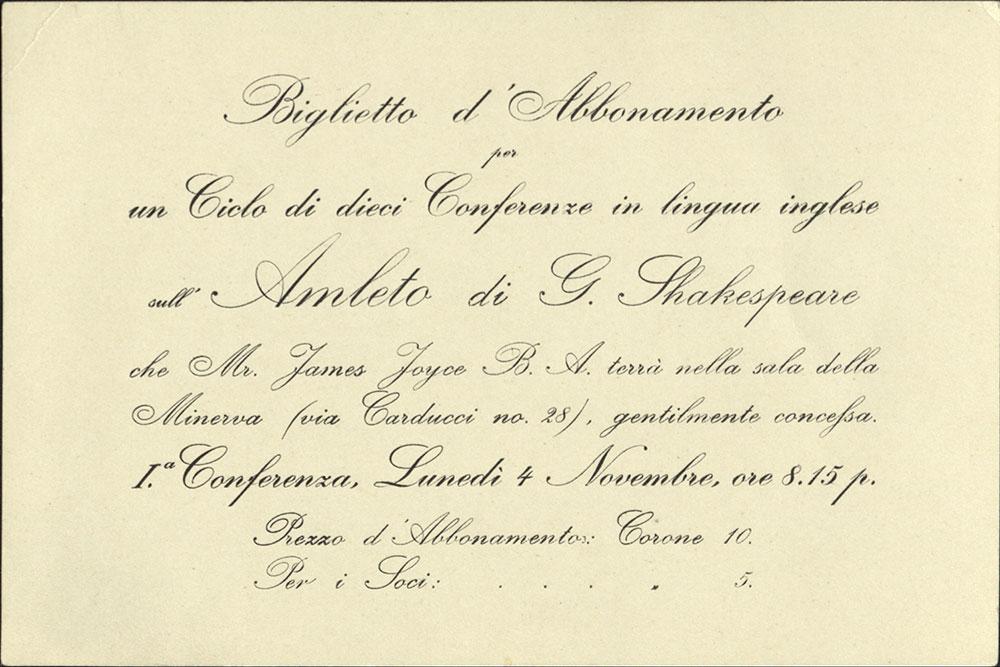 Biglietto d'Abbonamento
per
un Ciclo di dieci Conferenze in lingua inglese
sull' Amleto di G. Shakespeare
che Mr. James Joyce B. A. terrà nella sala della
Minerva (via Carducci no. 28), gentilmente conceſsa.
I.ª Conferenza, Lunedì 4 Novembre, ore 8.15 p.
Prezzo d'Abbonamento: Corone 10.
Per i Soci: . . . „ 5.